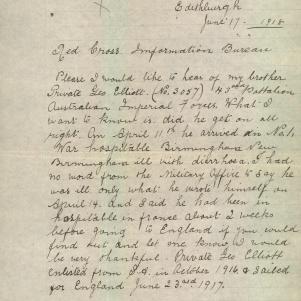 Edithburgh
June 17 - 1918
Red Cross. Information Bureau
Please I would like to hear of my brother
Private Geo Elliott. (No. 3057) 43rd Battalion
Australian Imperial Forces. What I
want to know is did he get on all
right. On April 11th he arrived in No 1,
War hospitable Birmingham New
Birmingham ill with diorrhosa. I had
no word from the Military Office to say he
was ill only what he wrote himself on
April 14. and said he had been in
hospitable in france about 2 weeks
before going to England if you would
find out and let one know I would
be very thankful. Private Geo Elliott
enlisted from S.A. in October 1916 & sailed
for England June 23rd 1917.